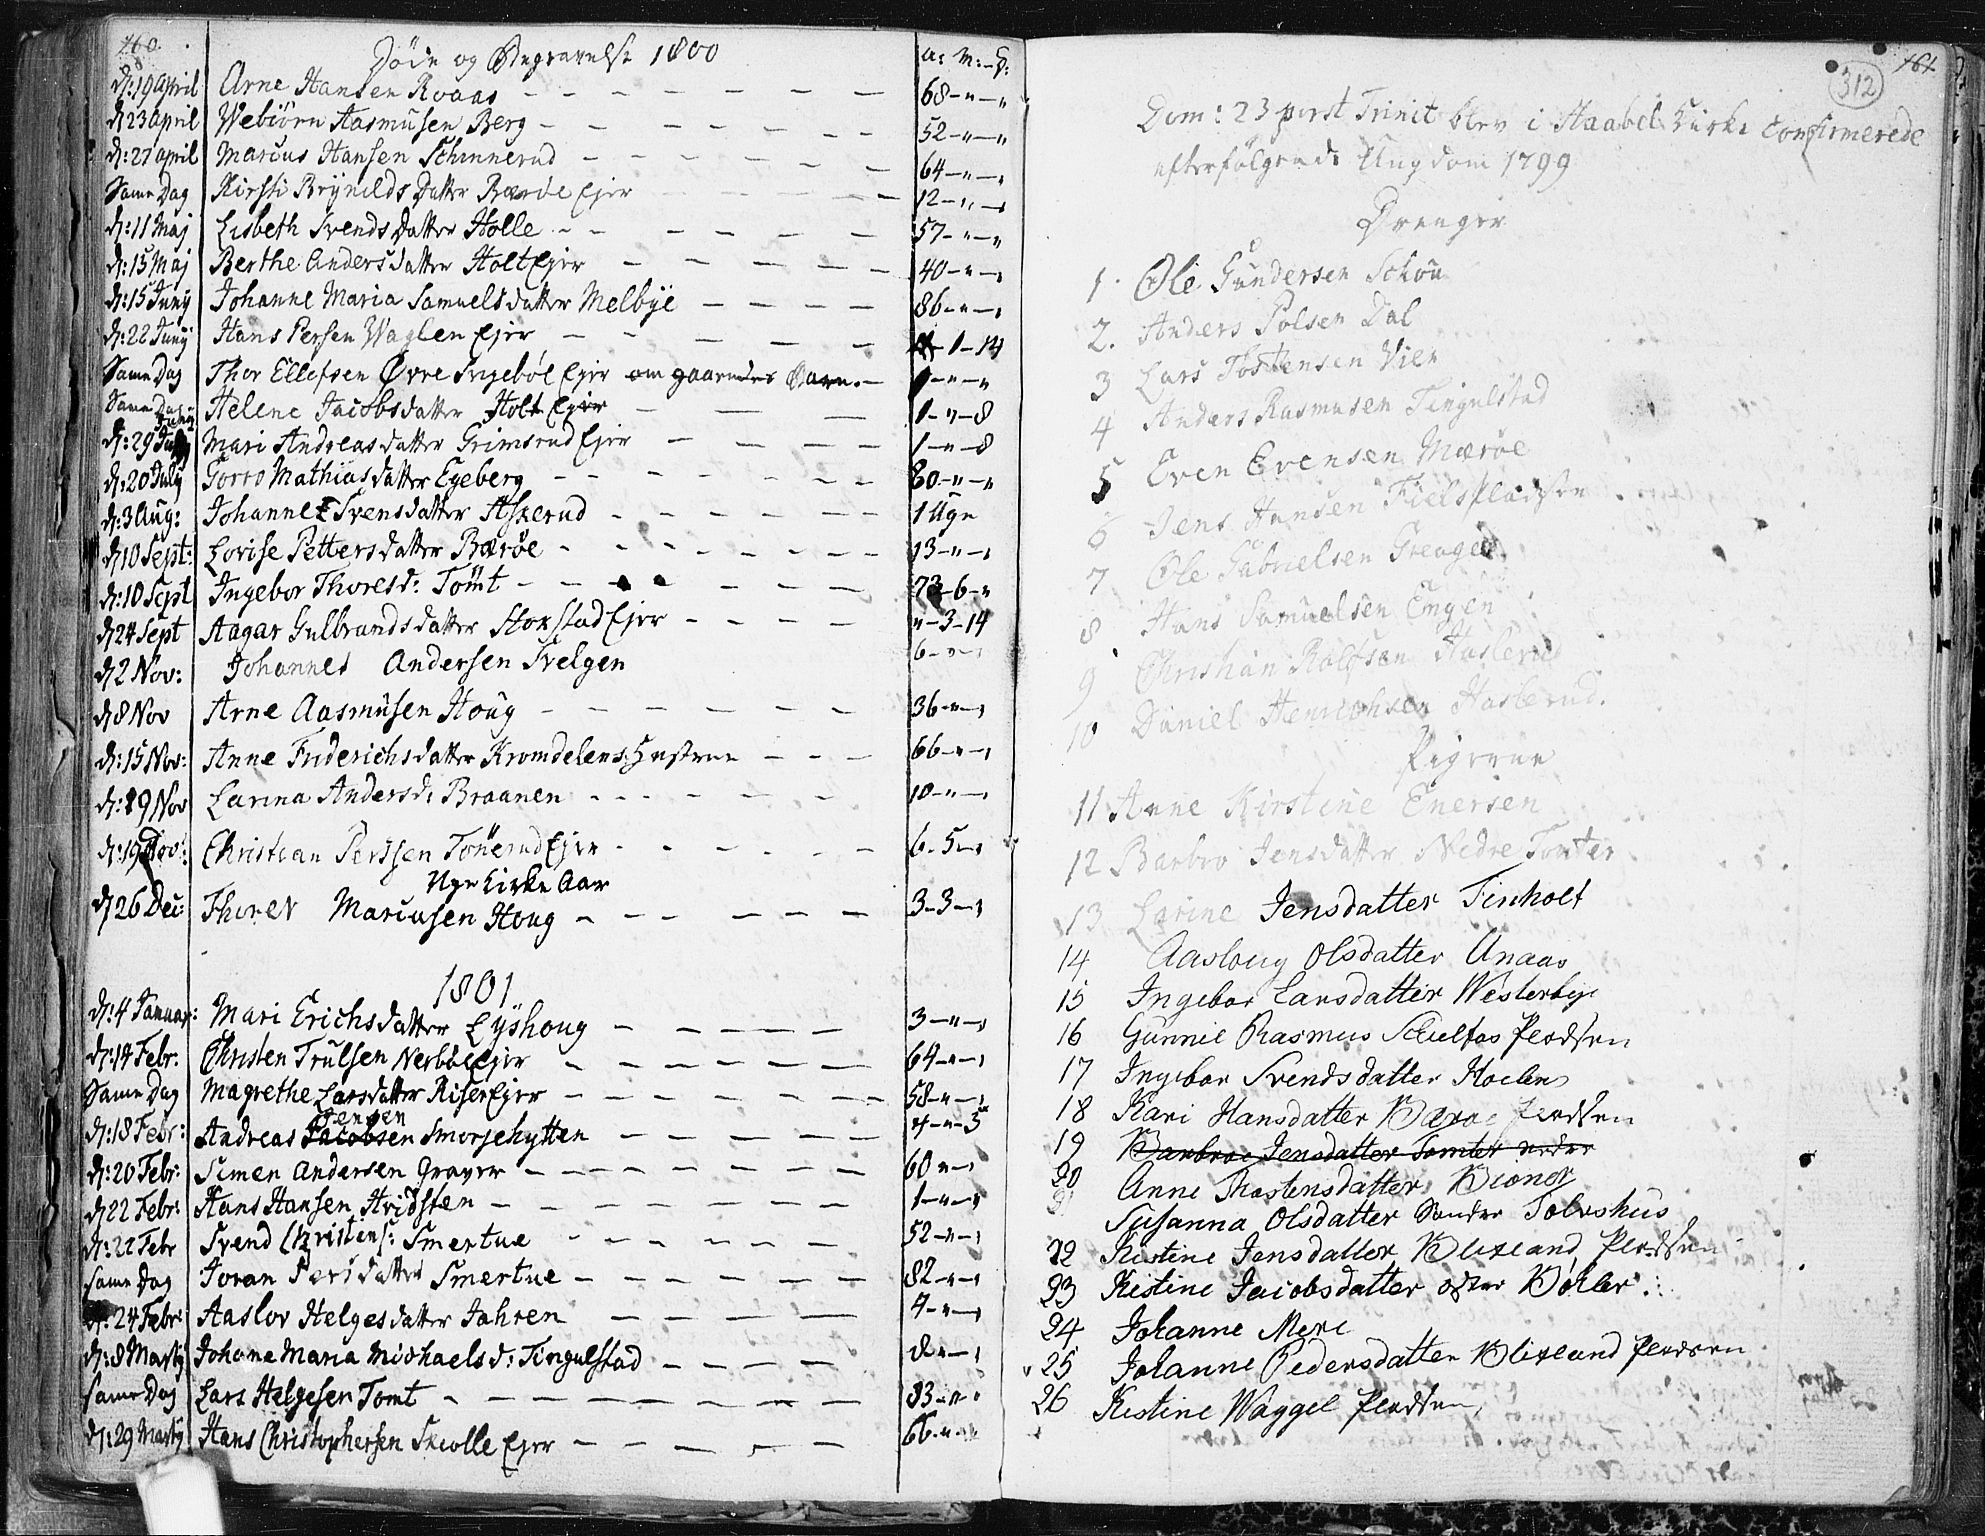 160.
Døde og Begravelse 1800
A: M: D:
d: 19 April Arne Hansen Roaas 68-"-"
d 23 April Webiörn Aasmusen Berg 52-"-"
d: 27 April Marcus Hansen Schinnerud 64-"-"
Same Dag Kirsti Brÿnilds Datter Bærøe Ejer 12-"-"
d: 11 Maj Lisbeth Svends Datter Holle 57-"-"
d: 15 Maj Berthe Andersdatter Holt Ejer 40-"-"
d: 15 Junÿ Johanne Maria Samuelsdatter Melbÿe 86-"-"
d: 22 Junÿ Hans Persen Waglen Ejer 1-14
Same Dag Thor Ellefsen Øvre Ingebøl Ejer 1-"-"
Same Dag Helene Jacobsdatter Holt Ejer 1-"-8
Junÿ
d: 29 Mari Andreasdatter Grimsrud Ejer 1-"-8
d: 20 Julÿ Gorro Mathiasdatter Egeberg 80-"-"
d: 3 Aug: Johanne Svensdatter Askerud 1 Uge
d 10 Sept: Lovise Pettersdatter Bærøe 13-"-"
d: 10 Sept Ingebor Thoresd: Tomt 73-6-"
d 24 Sept Aagar Gulbrandsdatter Storstad Ejer "-3-14
d 2 Nov: Johannes Andersen Svelgen 6-"-"
d 8 Nov Arne Aasmusen Houg 36-"-"
d: 15 Nov: Anne Friderichsdatter Kromdelens Hustrue 66-"-"
d: 19 Nov Larina Andersd: Braanen 10-"-"
d: 19 Christian Perssen Tönerud Ejer 6-5-"
Nye Kirke Aar
d 26 Dec: Thorer Marcusen Houg 3-3-"
1801
d: 4 Januar: Mari Erichsdatter Lÿshoug 3-"-"
d: 14 Febr: Christen Trulsen Nerbøl Ejer 64-"-"
Same Dag Magrethe Larsdatter Riser Ejer 58-"-"
Jensen
d: 18 Febr: Andreas Jacobsen Smorjehytten 4-"-3
d: 20 Febr: Simen Andersen Graver 60-"-"
d 22 Febr: Hans Hansen Hvidsten 1-"-"
d: 22 Febr Svend Christens: Smertue 52-"-"
Same Dag Joran Persdatter Smertue 82-"-"
d: 24 Febr: Aaslov Helgesdatter Jahren 4-"-"
d: 8 Martÿ Johane Maria Michaelsd: Tingulstad 2-"-"
Same Dag Lars Helgesen Tomt 83-"-"
d: 29 Martÿ Hans Christophersen Skiolle Ejer 66-"-"
161
312
Dom: 23 post Trinit blev i Haabel Kirke Confirmerede
efterfølgende Ungdom 1799
Drenger
1. Ole Gundersen Schou
2. Anders Polsen Dal
3 Lars Tostensen Vien
4 Anders Rasmusen Tingulstad
5 Even Evensen Mærøe
6 Jens Hansen Fields Pladsen
7 Ole Gabrielsen Grenge
8 Hans Samuelsen Engen
9 Christian Rolfsen Haslerud
10 Daniel Henrichsen Haslerud.
Pigerne
11 Anne Kirstine Enersen
12 Barbro Jensdatter Nedre Tomter
13 Larine Jensdatter Finholt
14 Aasloug Olsdatter Unaas
15 Ingebor Larsdatter Westerbye
16 Gunnie Rasmus Schultas Pladsen
17 Ingebor Svendsdatter Hoelen
18 Kari Hansdatter Bærøe Pladsen
19 Barbroe Jensdatter Tomter nedre
20 Anne Thostensdatter Biøner
21 Susanna Olsdatter Søndre Tolvshus
22 Kistine Jensdatter Blixland Pladsen
23 Kistine Jacobsdatter østre Bøhler
24 Johanne Mere
25 Johanne Pedersdatter Blixland Pladsen
26 Kistine Waggel Pladsen